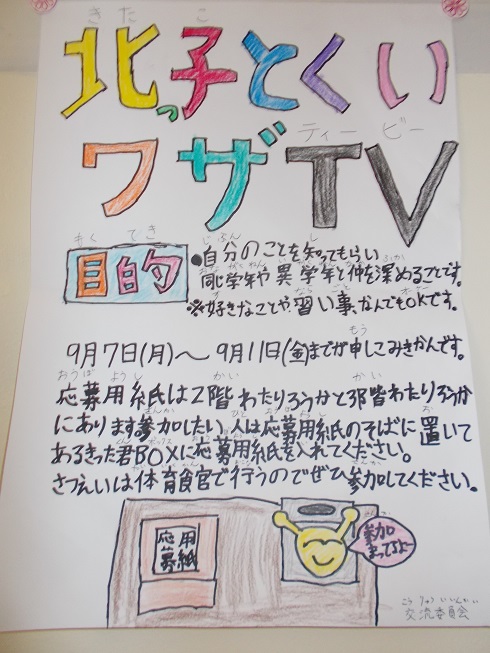 北っ子とくい
ワザTV
目的
・自分のことを知ってもらい
同学年や異学年と仲を深めることです。
※好きなことや習い事、なんでもOKです。
9月7日(月)〜9月11日(金)までが申しこみきかんです。
応募用紙は2階わたりろうかと3階わたりろうか
にあります参加したい人は応募用紙のそばに置いて
あるきった君BOXに応募用紙を入れてください。
さつえいは体育館で行うのでぜひ参加してください。
応募用紙
参加
まってるよー
交流委員会